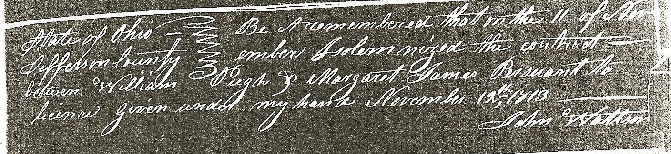 State of Ohio Be it remembered that on the 11 of Nov
Jefferson County ember Solemnized the contract
between William Pugh & Margaret James Persuant to
licence given under my hand November 12th, 1813
John Watson